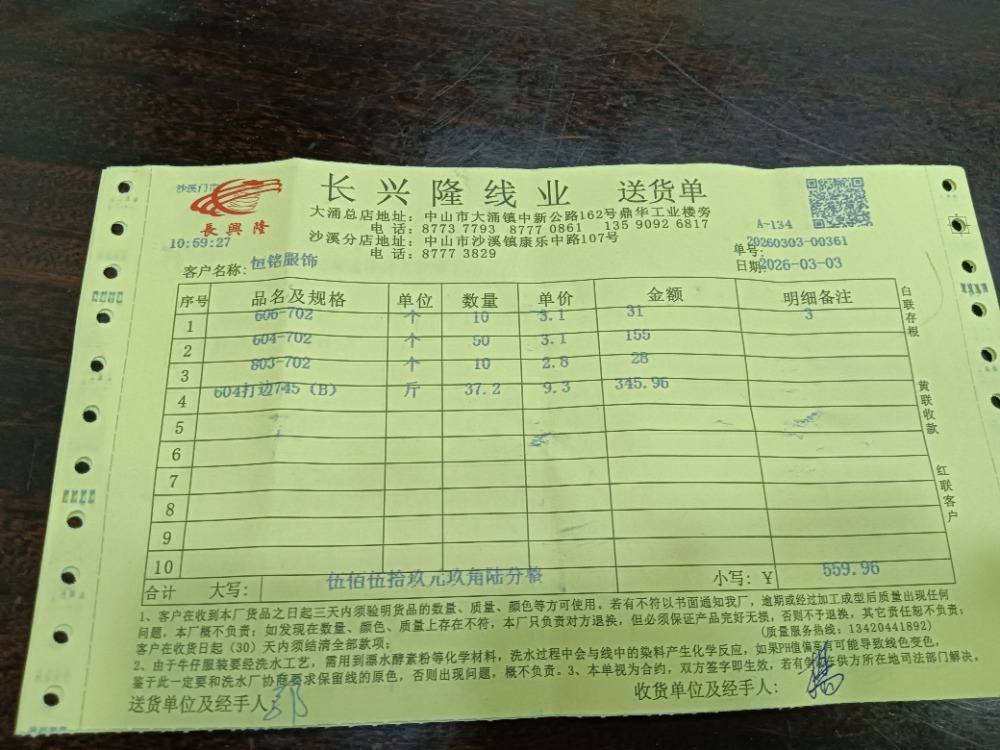 沙溪门市
長興隆
10:59:27
长兴隆线业 送货单
大涌总店地址：中山市大涌镇中新公路162号鼎华工业楼旁
电话：8773 7793 8777 0861 135 9092 6817
沙溪分店地址：中山市沙溪镇康乐中路107号
电话：8777 3829
A-134
单号：20260303-00361
日期：2026-03-03
客户名称：恒铭服饰
序号 品名及规格 单位 数量 单价 金额 明细备注
1 606-702 个 10 3.1 31 3
2 604-702 个 50 3.1 155
3 803-702 个 10 2.8 28
4 604打边745（B） 斤 37.2 9.3 345.96
5
6
7
8
9
10
合计 大写：伍佰伍拾玖元玖角陆分整 小写：￥ 559.96
白联存根
黄联收款
红联客户
1、客户在收到本厂货品之日起三天内须验明货品的数量、质量、颜色等方可使用。若有不符以书面通知我厂，逾期或经过加工成型后质量出现任何
问题，本厂概不负责；如发现在数量、颜色、质量上存在不符，本厂只负责对方退换，但必须保证产品完好无损，否则不予退换，其它责任恕不负责；
客户在收货日起（30）天内须结清全部款项； （质量服务热线：13420441892）
2、由于牛仔服装要经洗水工艺，需用到漂水酵素粉等化学材料，洗水过程中会与线中的染料产生化学反应，如果PH值偏高有可能导致线色变色，
鉴于此一定要和洗水厂协商要求保留线的原色，否则出现问题，概不负责。3、本单视为合约，双方签字即生效，若有 在供方所在地司法部门解决，
送货单位及经手人： 收货单位及经手人：